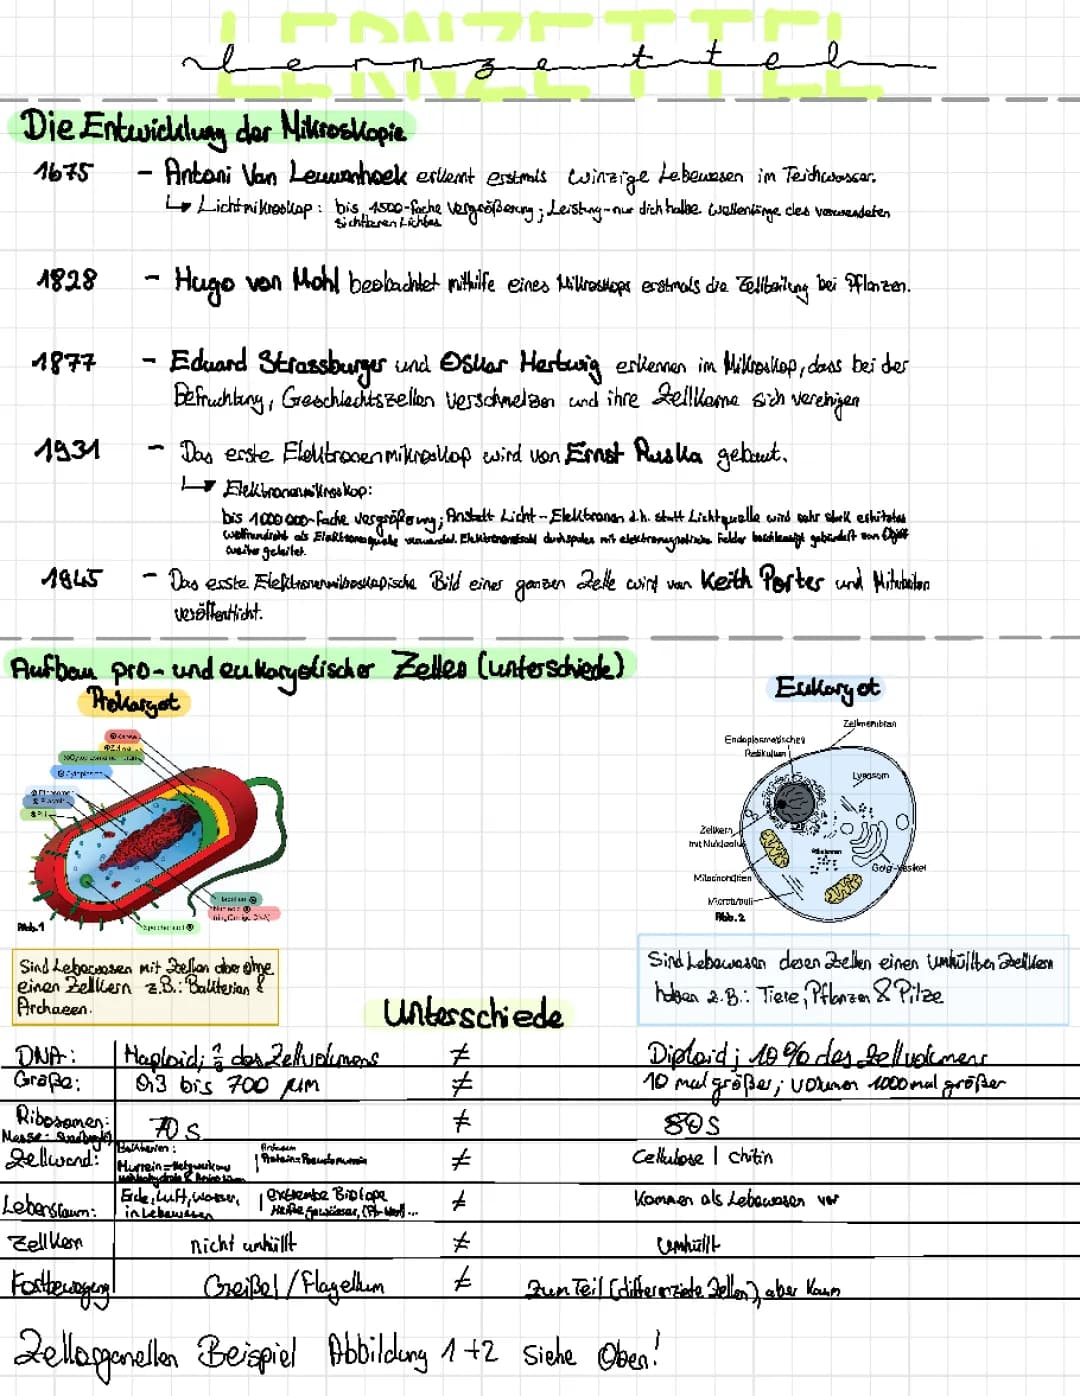 LERNZETTEL
lernzettel
Die Entwicklung der Mikroskopie
1675 - Antoni Van Leuwenhoek erkennt erstmals winzige Lebewesen im Teichwasser.
↳ Lichtmikroskop: bis 1500-fache Vergrößerung; Leistung-nur dich halbe Wellenlänge des verwendeten
sichtbaren Lichtes
1828 - Hugo von Mohl beobachtet mithilfe eines Mikroskops erstmals die Zellteilung bei Pflanzen.
1877 - Eduard Strassburger und Oskar Hertwig erkennen im Mikroskop, dass bei der
Befruchtung, Geschlechtszellen verschmelzen und ihre Zellkerne sich vereinigen
1931 - Das erste Elektronenmikroskop wird von Ernst Ruska gebaut.
↳ Elektronenmikroskop:
bis 1000 000-fache Vergrößerung; Anstatt Licht-Elektronen d.h. statt Lichtquelle wird sehr stark erhitzter
als Elektronenquelle verwendet. Elektronenstrahl durch spulen mit elektromagnetische Felder beschleunigt gebündelt von Objekt
weiter geleitet.
1945 - Das erste Elektronenmikroskopische Bild einer ganzen Zelle wird von Keith Porter und Mitarbeiter
veröffentlicht.
Aufbau pro- und eukaryotischer Zellen (unterschiede)
Prokaryot
Eukaryot
Zellmembran
Endoplasmatisches
Retikulum
Lysosom
Zellkern
mit Nukleolus
Ribosomen
Golgi-Vesikel
Mitochondrien
Mikrotubuli
Abb.1
Abb.2
Sind Lebewesen mit Zellen aber ohne
einen Zellkern z.B.: Bakterien &
Archaeen.
Sind Lebewesen deren Zellen einen umhüllten Zellkern
haben z.B.: Tiere, Pflanzen & Pilze
Unterschiede
DNA: Haploid; ⅔ des Zellvolumens ≠ Diploid; 10% des Zellvolumens
Größe: 0,3 bis 700 µm ≠ 10 mal größer; Volumen 1000 mal größer
Ribosomen: 70 S ≠ 80S
Masse:
Zellwand: Bakterien: Murein=Netzwerk aus | Archaeen Protein=Pseudomurein ≠ Cellulose | Chitin
Lebensraum: Erde, Luft, Wasser, in Lebewesen | extreme Biotope Heiße Gewässer, ... ≠ Kommen als Lebewesen vor
Zellkern nicht umhüllt ≠ Umhüllt
Fortbewegung Geißel / Flagellum ≠ Zum Teil (differenzierte Zellen), aber kaum
Zellorganellen Beispiel Abbildung 1+2 siehe Oben!